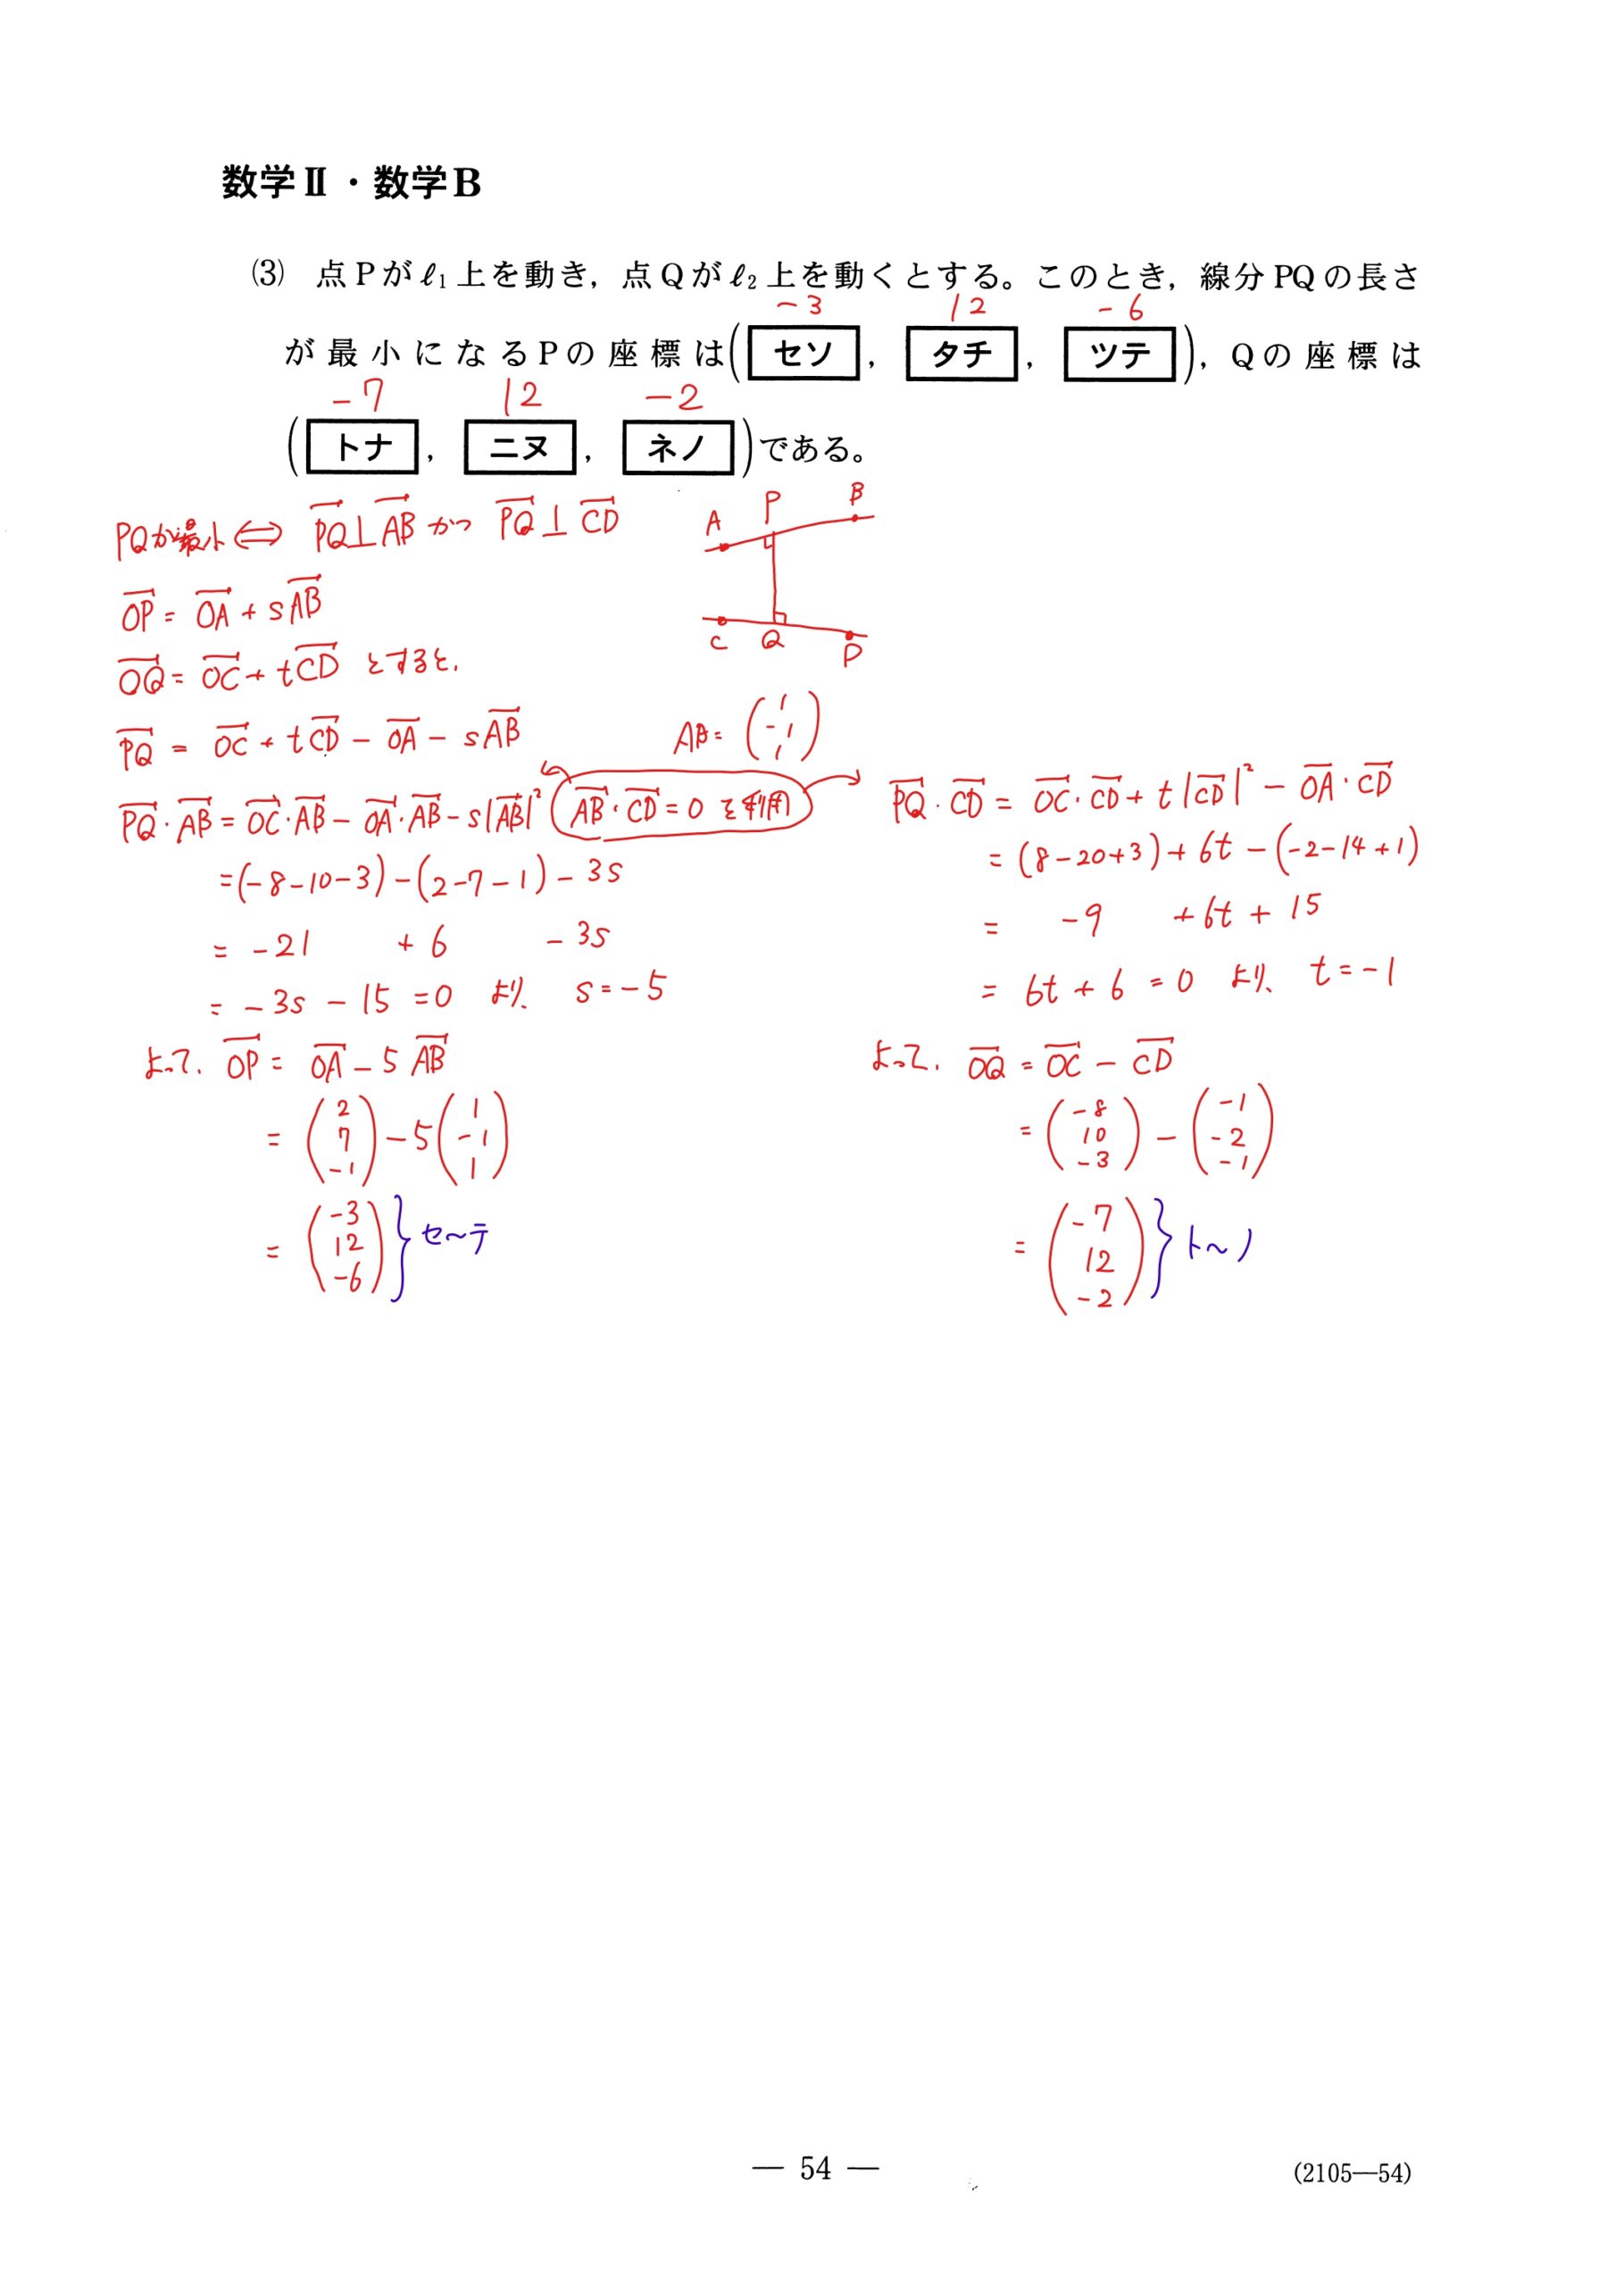 数学Ⅱ・数学B
(3) 点Pがℓ₁上を動き，点Qがℓ₂上を動くとする。このとき，線分PQの長さ
-3 12 -6
が最小になるPの座標は(セソ，タチ，ツテ)，Qの座標は
-7 12 -2
(トナ，ニヌ，ネノ)である。
PQが最小⇔ PQ⊥AB かつ PQ⊥CD
A P B
C Q D
OP = OA + sAB
OQ = OC + tCD とすると、
PQ = OC + tCD - OA - sAB
AB = (1 -1 1)
PQ・AB = OC・AB - OA・AB - s|AB|²
AB・CD = 0 を利用
= (-8-10-3) - (2-7-1) - 3s
= -21 + 6 - 3s
= -3s - 15 = 0 より、 s = -5
よって、 OP = OA - 5AB
= (2 7 -1) - 5(1 -1 1)
= (-3 12 -6) } セ～テ
PQ・CD = OC・CD + t|CD|² - OA・CD
= (8-20+3) + 6t - (-2-14+1)
= -9 + 6t + 15
= 6t + 6 = 0 より、 t = -1
よって、 OQ = OC - CD
= (-8 10 -3) - (-1 -2 -1)
= (-7 12 -2) } ト～ノ
— 54 —
(2105—54)